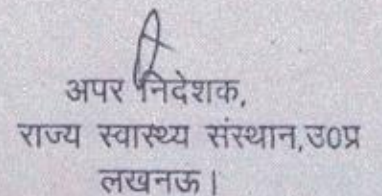 अपर निदेशक,
राज्य स्वास्थ्य संस्थान,उ0प्र
लखनऊ।